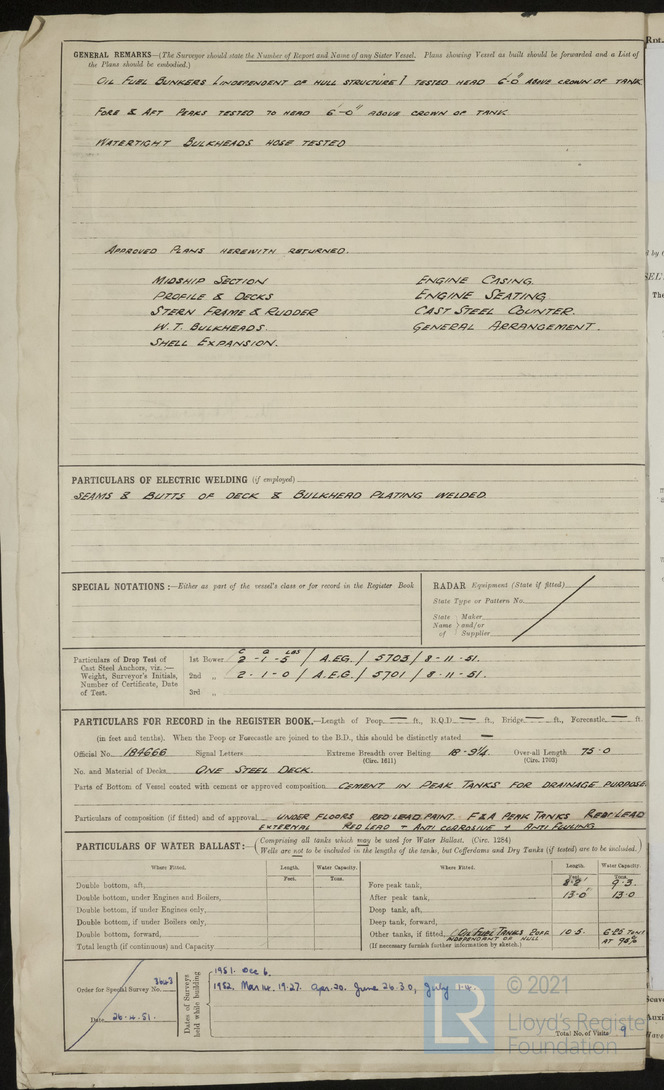 GENERAL REMARKS—(The Surveyor should state the Number of Report and Name of any Sister Vessel. Plans showing Vessel as built should be forwarded and a List of
the Plans should be embodied.)
OIL FUEL BUNKERS (INDEPENDENT OF HULL STRUCTURE) TESTED HEAD 6'-0" ABOVE CROWN OF TANK
FORE & AFT PEAKS TESTED TO HEAD 6'-0" ABOVE CROWN OF TANK
WATERTIGHT BULKHEADS HOSE TESTED
APPROVED PLANS HEREWITH RETURNED.
MIDSHIP SECTION ENGINE CASING
PROFILE & DECKS ENGINE SEATING
STERN FRAME & RUDDER CAST STEEL COUNTER.
W.T. BULKHEADS. GENERAL ARRANGEMENT.
SHELL EXPANSION.
PARTICULARS OF ELECTRIC WELDING (if employed)
SEAMS & BUTTS OF DECK & BULKHEAD PLATING WELDED
SPECIAL NOTATIONS:—Either as part of the vessel's class or for record in the Register Book
RADAR Equipment (State if fitted)
State Type or Pattern No.
State Name of Maker and/or Supplier
Particulars of Drop Test of Cast Steel Anchors, viz.:— Weight, Surveyor's Initials, Number of Certificate, Date of Test.
C Q LBS
1st Bower 2-1-5 / A.E.G. / 5703 / 8-11-51.
2nd „ 2-1-0 / A.E.G. / 5701 / 8-11-51.
3rd „
PARTICULARS FOR RECORD in the REGISTER BOOK.—Length of Poop — ft., R.Q.D. — ft., Bridge — ft., Forecastle — ft.
(in feet and tenths). When the Poop or Forecastle are joined to the B.D., this should be distinctly stated —
Official No. 184666 Signal Letters Extreme Breadth over Belting 18-9¼ Over-all Length 75-0
(Circ. 1611) (Circ. 1703)
No. and Material of Decks ONE STEEL DECK.
Parts of Bottom of Vessel coated with cement or approved composition CEMENT IN PEAK TANKS FOR DRAINAGE PURPOSE
Particulars of composition (if fitted) and of approval UNDER FLOORS RED LEAD PAINT. F&A PEAK TANKS RED LEAD
EXTERNAL RED LEAD + ANTI CORROSIVE + ANTI FOULING
PARTICULARS OF WATER BALLAST:—(Comprising all tanks which may be used for Water Ballast. (Circ. 1284)
Wells are not to be included in the lengths of the tanks, but Cofferdams and Dry Tanks (if tested) are to be included.)
Where Fitted. Length. Water Capacity. Where Fitted. Length. Water Capacity.
Feet. Tons. Feet. Tons.
Double bottom, aft, Fore peak tank, 8-2' 9-3.
Double bottom, under Engines and Boilers, After peak tank, 13-0' 13-0
Double bottom, if under Engines only, Deep tank, aft,
Double bottom, if under Boilers only, Deep tank, forward,
Double bottom, forward, Other tanks, if fitted, (OIL FUEL TANKS 10·5. 6·25 TONS
INDEPENDENT OF HULL AT 98%
Total length (if continuous) and Capacity (If necessary furnish further information by sketch.)
Order for Special Survey No. 3643
Date 26.4.51.
Dates of Surveys held while building
1951. Dec 6.
1952. Mar 14. 19. 27. Apr. 20. June 26. 30, July 1.4.
Total No. of Visits 9
LR
© 2021
Lloyd's Registe
Foundation
Rpt.